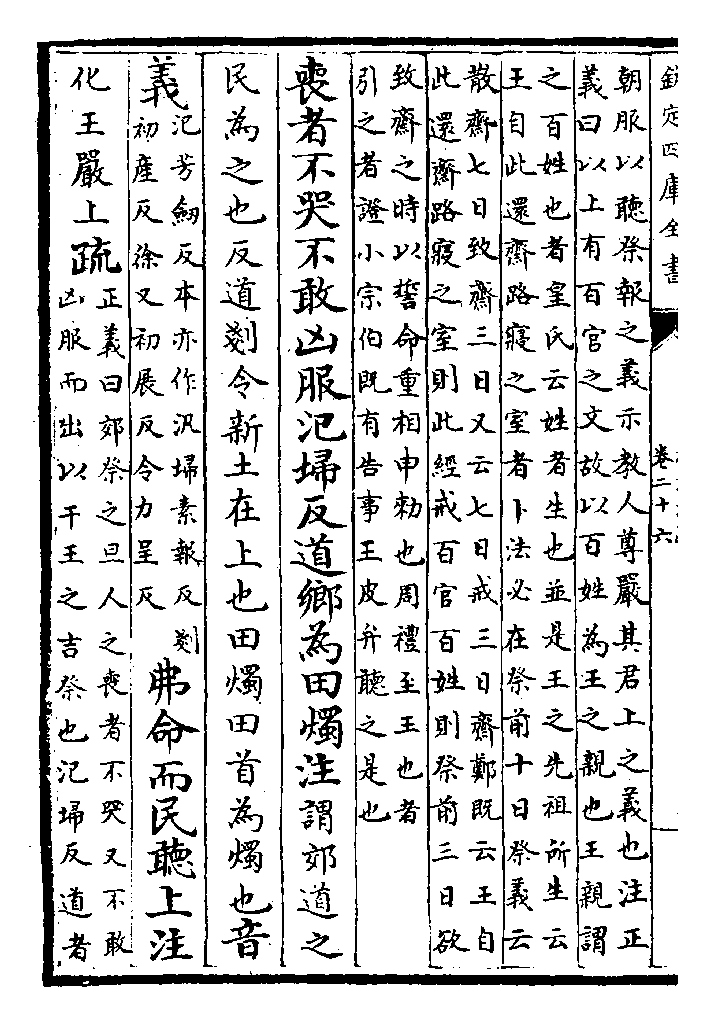 欽定四庫全書
卷二十六
朝服以聽祭報之義示教人尊嚴其君上之義也注正
義曰以上有百官之文故以百姓為王之親也王親謂
之百姓也者皇氏云姓者生也並是王之先祖所生云
王自此還齋路寢之室者卜法必在祭前十日祭義云
散齋七日致齋三日又云七日戒三日齋鄭既云王自
此還齋路寢之室則此經戒百官百姓則祭前三日欲
致齋之時以誓命重相申勑也周禮至王也者
引之者證小宗伯既有告事王皮弁聽之是也
喪者不哭不敢凶服氾埽反道鄉為田燭注謂郊道之
民為之也反道剗令新土在上也田燭田首為燭也音
義氾芳劒反本亦作汎埽素報反剗
初產反徐又初展反令力呈反弗命而民聽上注
化王嚴上疏正義曰郊祭之旦人之喪者不哭又不敢
凶服而出以干王之吉祭也氾埽反道者